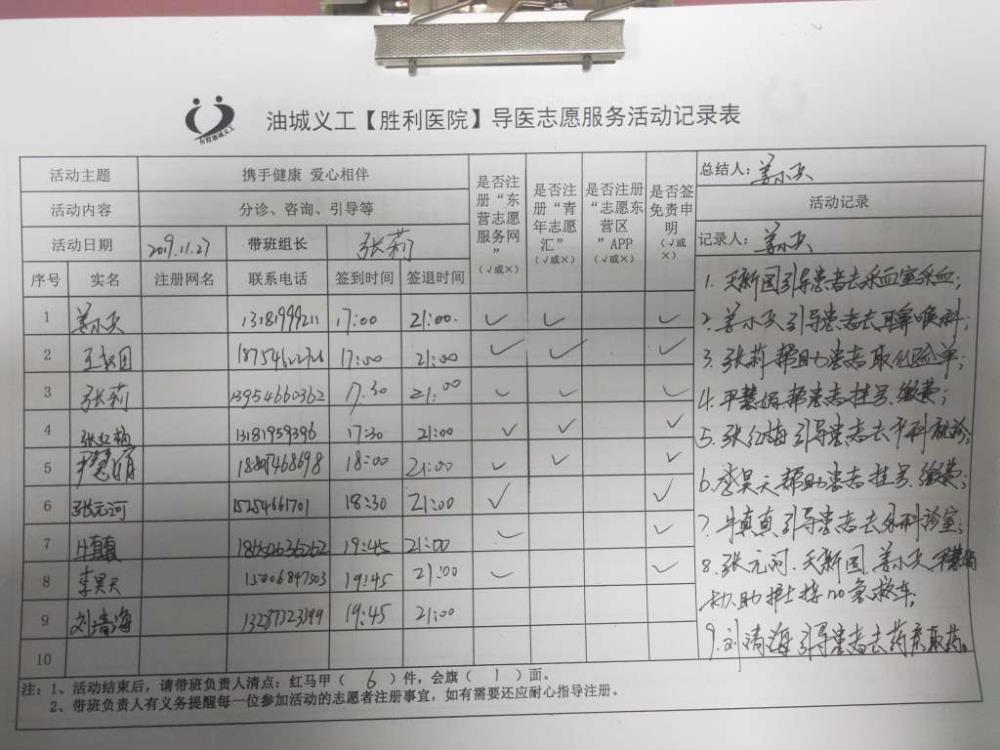 油城义工【胜利医院】导医志愿服务活动记录表
东营油城义工
活动主题 携手健康 爱心相伴
活动内容 分诊、咨询、引导等
活动日期 2019.11.27 带班组长 张莉
序号 实名 注册网名 联系电话 签到时间 签退时间
是否注册“东营志愿服务网” (√或×)
是否注册“青年志愿汇” (√或×)
是否注册“志愿东营区”APP (√或×)
是否签免责申明 (√或×)
1 13181999211 17:00 21:00. ✓ ✓ ✓
2 17:00 21:00 ✓ ✓ ✓
3 张莉 13954660362 17:30 21:00 ✓ ✓ ✓
4 张红梅 13181959396 17:30 21:00 ✓ ✓ ✓
5 尹慧娟 18:00 21:00 ✓ ✓ ✓
6 张元河 15254661701 18:30 21:00 ✓ ✓
7 牛真真 19:45 21:00 ✓ ✓
8 李昊天 15006847503 19:45 21:00 ✓ ✓
9 刘清海 19:45 21:00
10
总结人:
活动记录
记录人:
1. 引导患者去采血室采血;
2. 引导患者去耳鼻喉科;
3. 张莉帮助患者取化验单;
4. 尹慧娟帮患者挂号、缴费;
5. 张红梅引导患者去 科就诊;
6. 李昊天帮助患者挂号、缴费;
7. 牛真真引导患者去外科诊室;
8. 张元河、 尹慧娟
协助护士接120急救车;
9. 刘清海引导患者去药房取药。
注:1、活动结束后,请带班负责人清点:红马甲( 6 )件,会旗( 1 )面。
2、带班负责人有义务提醒每一位参加活动的志愿者注册事宜,如有需要还应耐心指导注册。